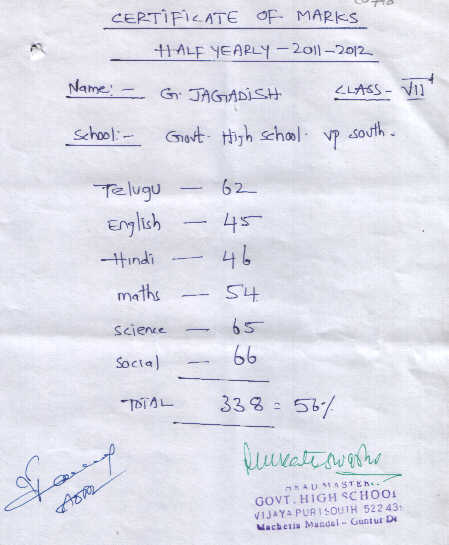 CERTIFICATE OF MARKS
HALF YEARLY - 2011-2012
Name: - G. JAGADISH CLASS - VII
School: - Govt. High School. vp south.
Telugu - 62
English - 45
Hindi - 46
maths - 54
science - 65
social - 66
TOTAL 338 = 56%
HEAD MASTER
GOVT. HIGH SCHOOL
VIJAYAPURI SOUTH 522 43
Macherla Mandal - Guntur Dt